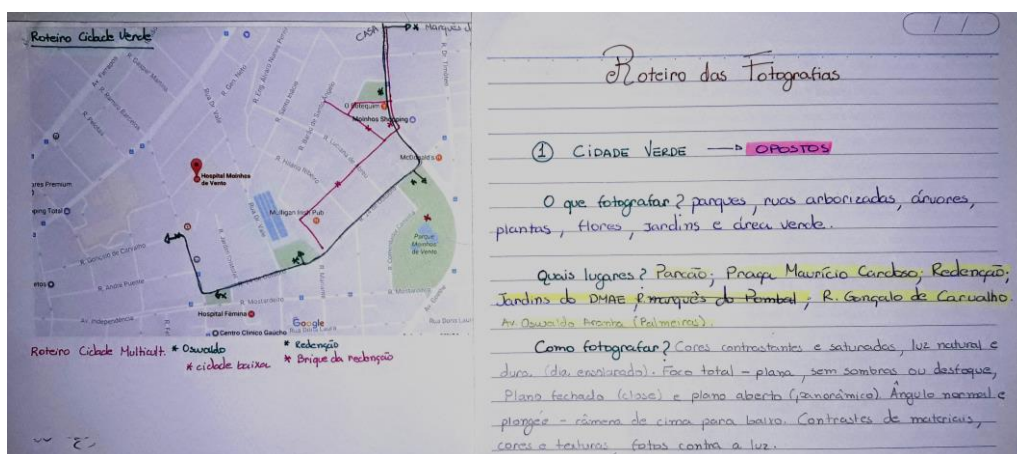 Roteiro Cidade Verde
CASA
Marquês d
R. Dr. Timóteo
Av. Farrapos
R. Gaspar Martins
R. Ramiro Barcelos
Rua Dr. Vale
R. Gen. Neto
Moinhos Shopping
McDonald's
Hospital Moinhos
de Vento
ures Premium
ping Total
Mulligan Irish Pub
Parque
Moinhos
de Vento
R. Gonçalo de Carvalho
R. André Puente
R. Mostardeiro
Hospital Fêmina
Av. Independência
Google
Centro Clínico Gaúcho
Rua Dona Laura
Roteiro Cidade Multicult. * Oswaldo * Redenção
* cidade baixa * Brique da redenção
/ /
Roteiro das Fotografias
1 CIDADE VERDE → OPOSTOS
O que fotografar? parques, ruas arborizadas, árvores,
plantas, flores, jardins e área verde.
Quais lugares? Parcão; Praça Maurício Cardoso; Redenção;
Jardins do DMAE; marquês do Pombal; R. Gonçalo de Carvalho.
Av. Oswaldo Aranha (Palmeiras).
Como fotografar? Cores contrastantes e saturadas, luz natural e
dura. (dia ensolarado). Foco total - plana, sem sombras ou desfoque,
Plano fechado (close) e plano aberto (panorâmico). Ângulo normal e
plongée - câmera de cima para baixo. Contrastes de materiais,
cores e texturas fotos contra a luz.